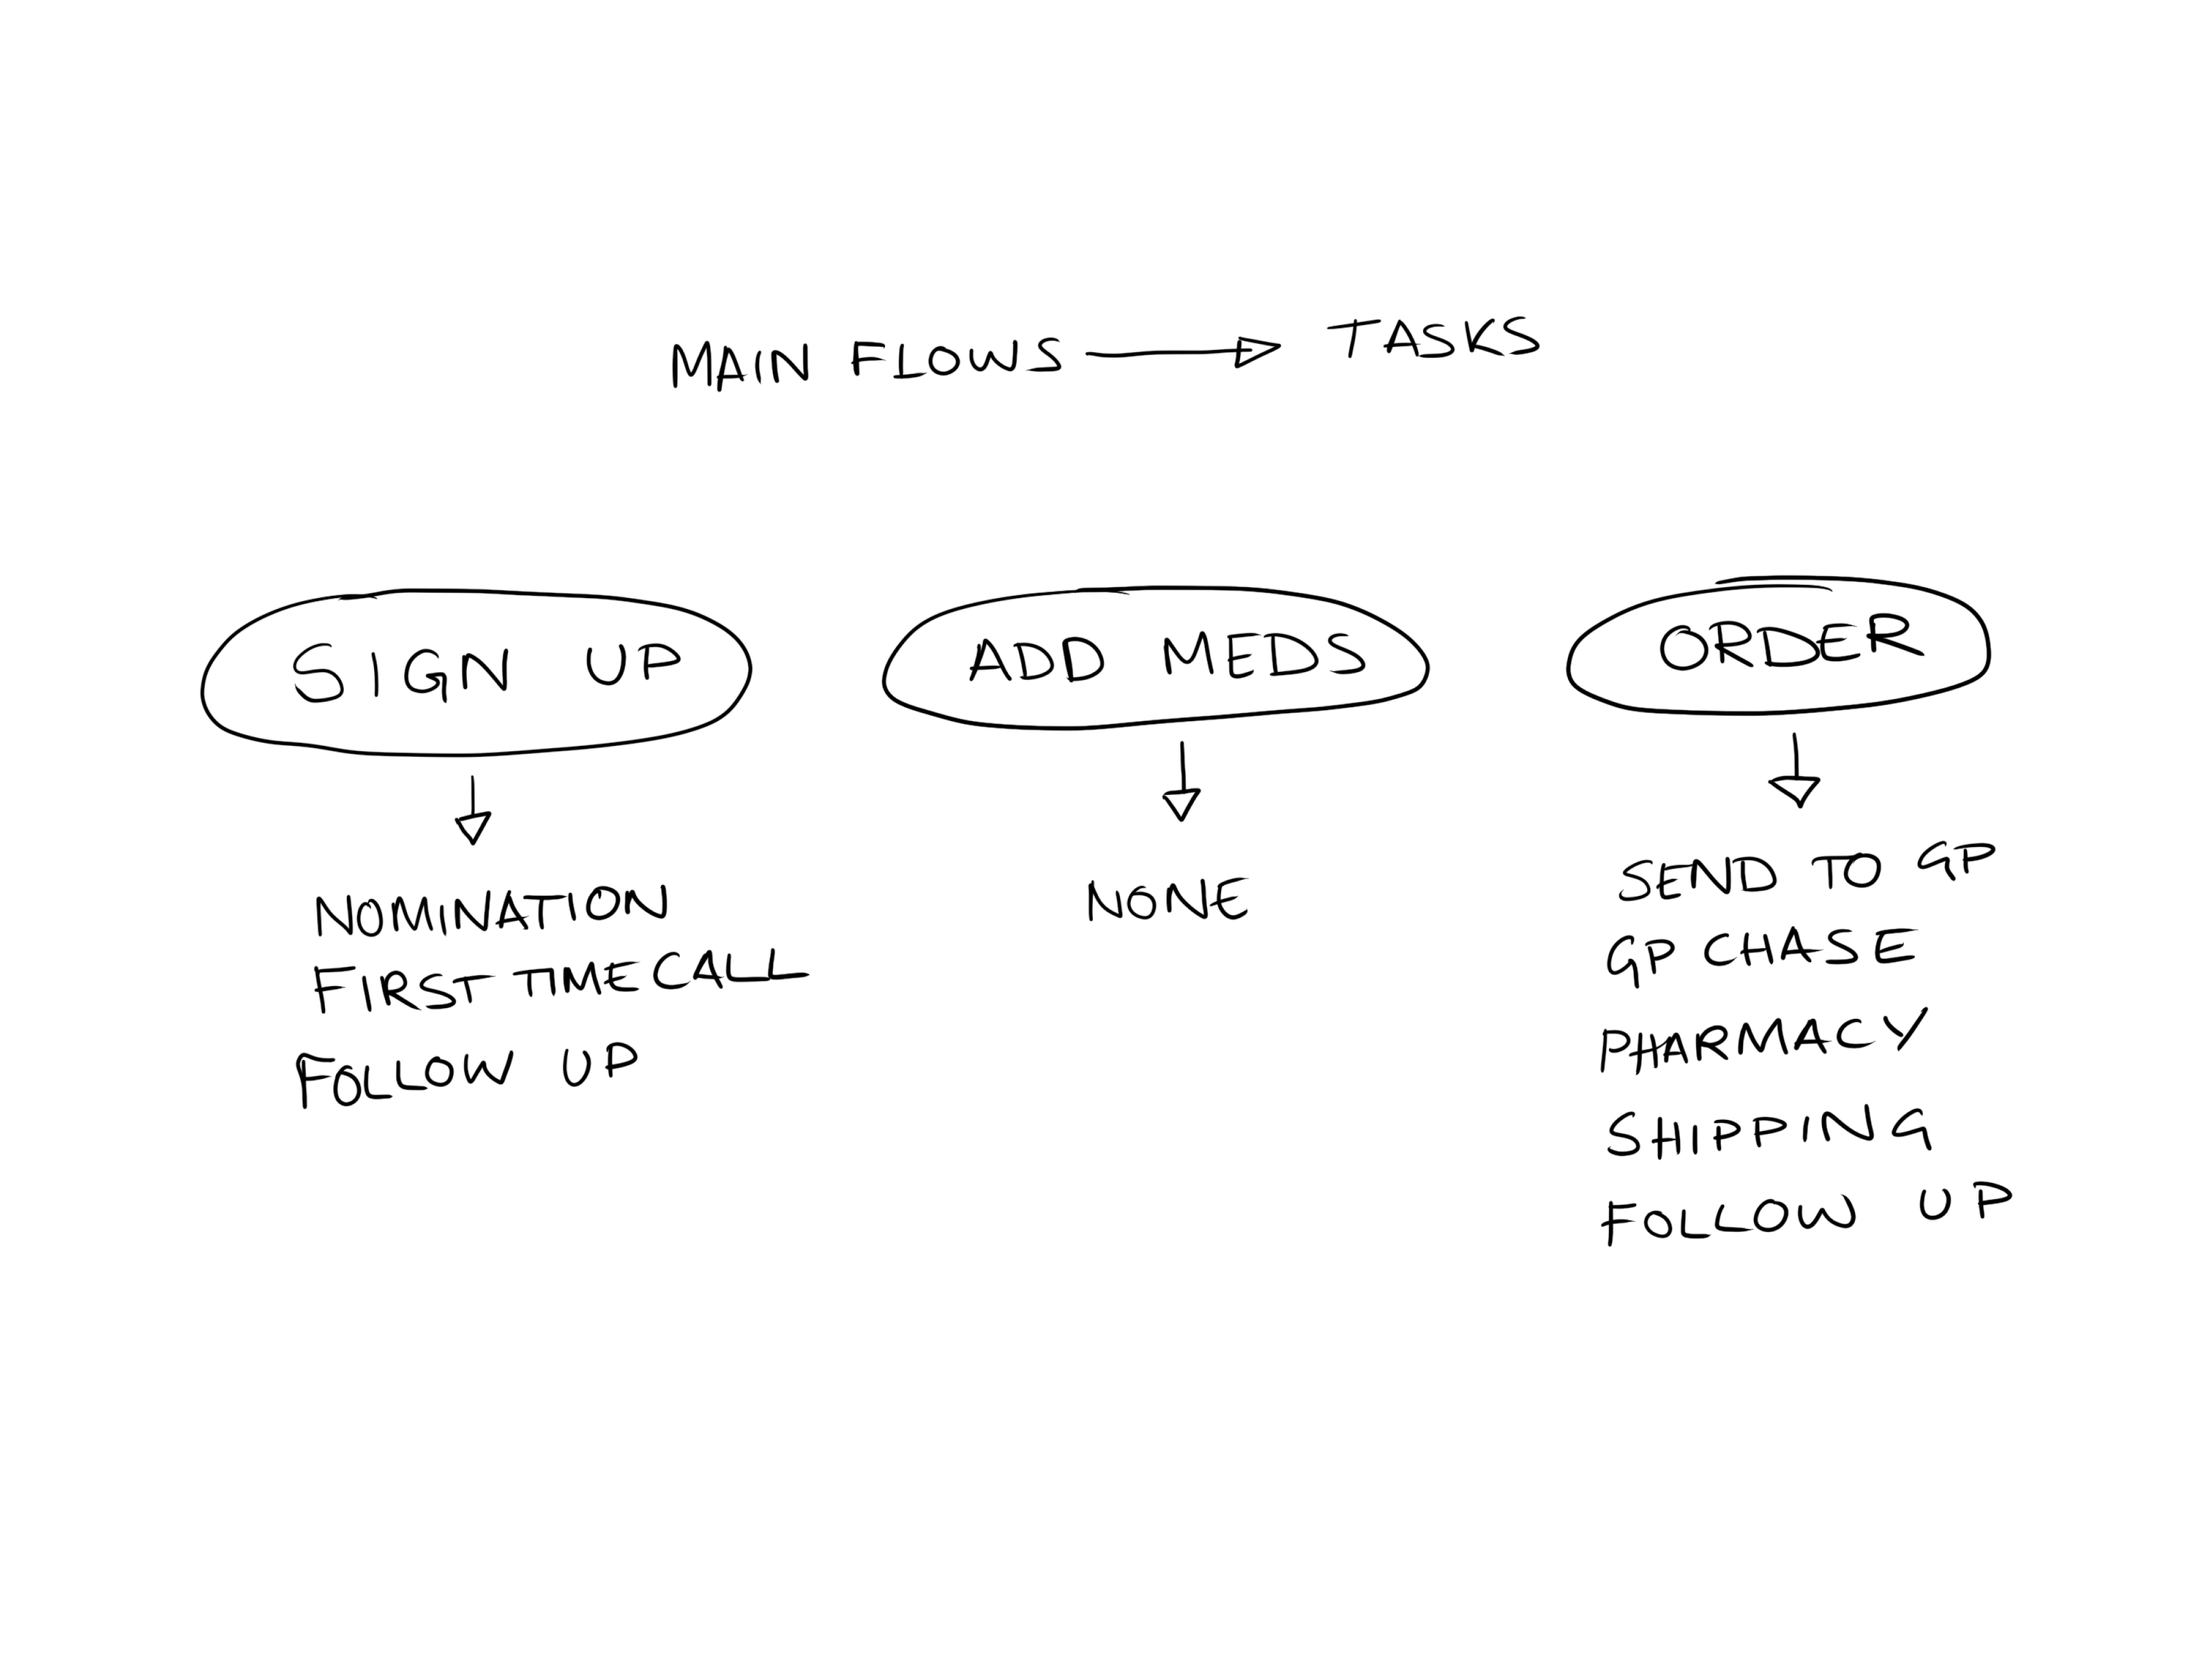 MAIN FLOWS TASKS
SIGN UP
NOMINATION
FIRST TIME CALL
FOLLOW UP
ADD MEDS
NONE
ORDER
SEND TO GP
GP CHASE
PHARMACY
SHIPPING
FOLLOW UP